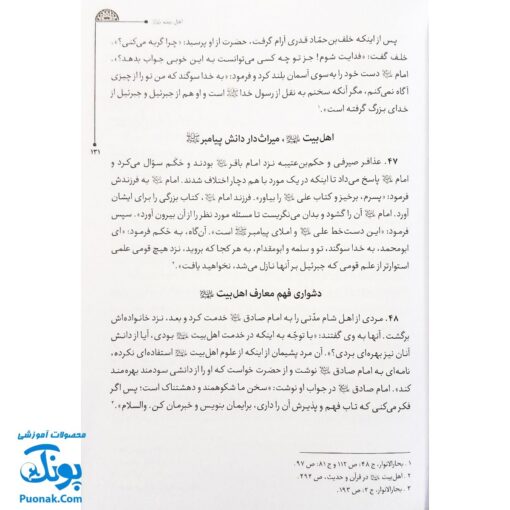 اهل بیت
۱۳۱
پس از اینکه خلف‌بن‌حمّاد قدری آرام گرفت، حضرت از او پرسید: «چرا گریه می‌کنی؟».
خلف گفت: «فدایت شوم! جز تو چه کسی می‌توانست به این خوبی جواب بدهد؟».
امام دست خود را به‌سوی آسمان بلند کرد و فرمود: «به خدا سوگند که من تو را از چیزی
آگاه نمی‌کنم، مگر آنکه سخنم به نقل از رسول خدا ﷺ است و او هم از جبرئیل و جبرئیل از
خدای بزرگ گرفته است».۱
اهل‌بیت ، میراث‌دار دانش پیامبر ﷺ
۴۷. عذافر صیرفی و حکم‌بن‌عتیبه نزد امام باقر بودند و حَکَم سؤال می‌کرد و
امام پاسخ می‌داد تا اینکه در یک مورد با هم دچار اختلاف شدند. امام به فرزندش
فرمود: «پسرم، برخیز و کتاب علی را بیاور». فرزند امام ، کتاب بزرگی را برای ایشان
آورد. امام آن را گشود و بدان می‌نگریست تا مسئله مورد نظر را از آن بیرون آورد. سپس
فرمود: «این دست‌خط علی و املای پیامبر ﷺ است». آن‌گاه، به حکم فرمود: «ای
ابومحمد، به خدا سوگند، تو و سلمه و ابومقدام، به هر کجا که بروید، نزد هیچ قومی علمی
استوارتر از علم قومی که جبرئیل بر آنها نازل می‌شد، نخواهید یافت».۲
دشواری فهم معارف اهل‌بیت
۴۸. مردی از اهل شام مدّتی را به امام صادق خدمت کرد و بعد، نزد خانواده‌اش
برگشت. آنها به وی گفتند: «با توجّه به اینکه در خدمت اهل‌بیت بودی، آیا از دانش
آنان نیز بهره‌ای بردی؟». آن مرد پشیمان از اینکه از علوم اهل‌بیت استفاده‌ای نکرده،
نامه‌ای به امام صادق نوشت و از حضرت خواست که او را از دانشی سودمند بهره‌مند
کند». امام صادق در جواب او نوشت: «سخن ما شکوهمند و دهشتناک است؛ پس اگر
فکر می‌کنی که تاب فهم و پذیرش آن را داری، برایمان بنویس و خبرمان کن. والسلام».۳
۱. بحارالانوار، ج ۴۸؛ ص ۱۱۲ و ج ۸۱؛ ص ۹۷.
۲. اهل‌بیت در قرآن و حدیث، ص ۲۹۲.
۳. بحارالانوار، ج ۲؛ ص ۱۹۳.
محصولات آموزشی
پونک
Puonak.Com